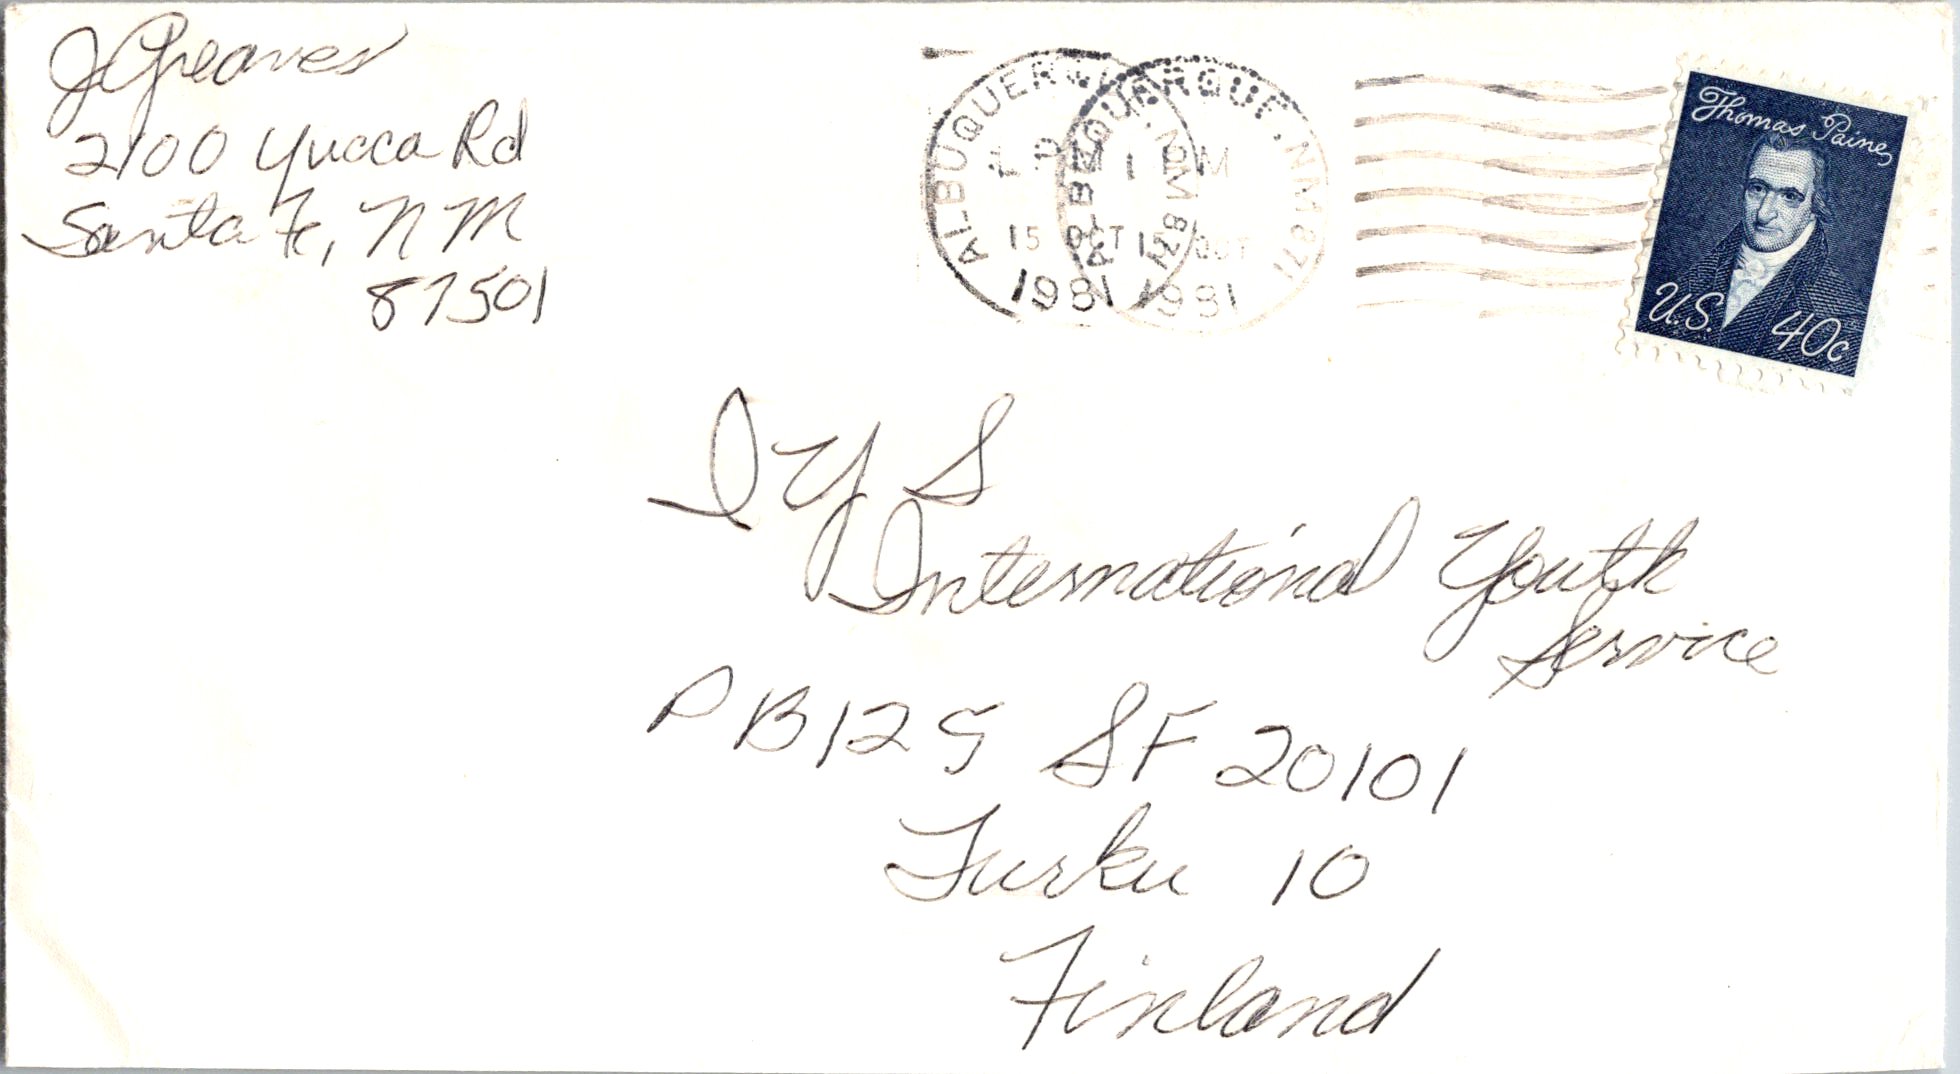 J Greaves
2100 Yucca Rd
Santa Fe, NM
87501
ALBUQUERQUE, NM 871
PM
15 OCT
1981
ALBUQUERQUE, NM 871
1 PM
15 OCT
1981
Thomas Paine
U.S. 40c
I Y S
International Youth
Service
PB125 SF 20101
Turku 10
Finland